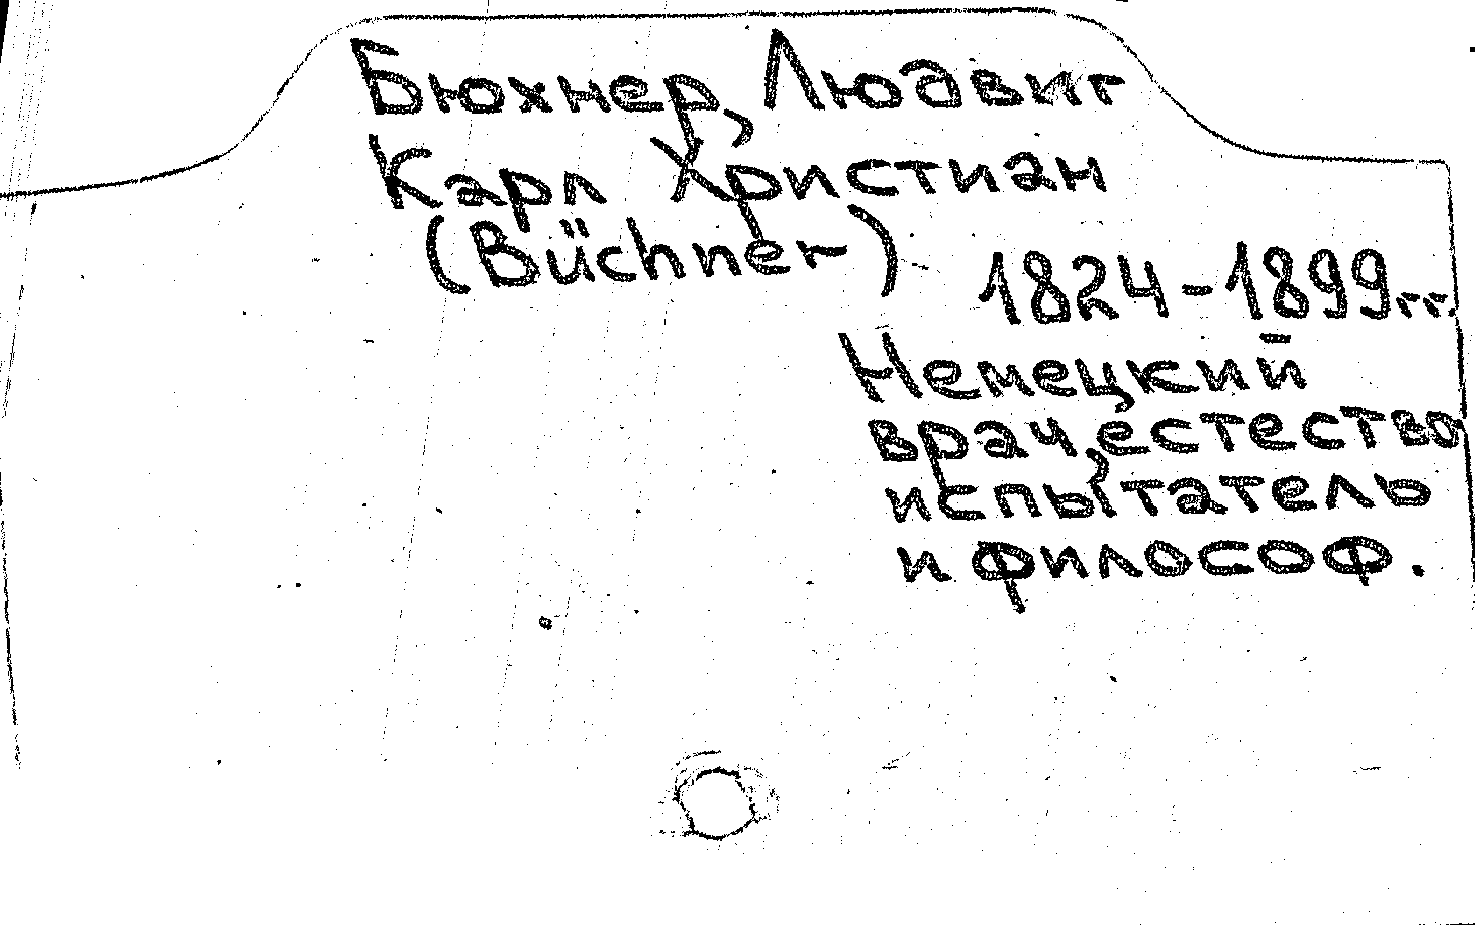 Бюхнер, Людвиг
Карл Христиан
(Büchner)
1824-1899гг.
Немецкий
врач, естество
испытатель
и философ.